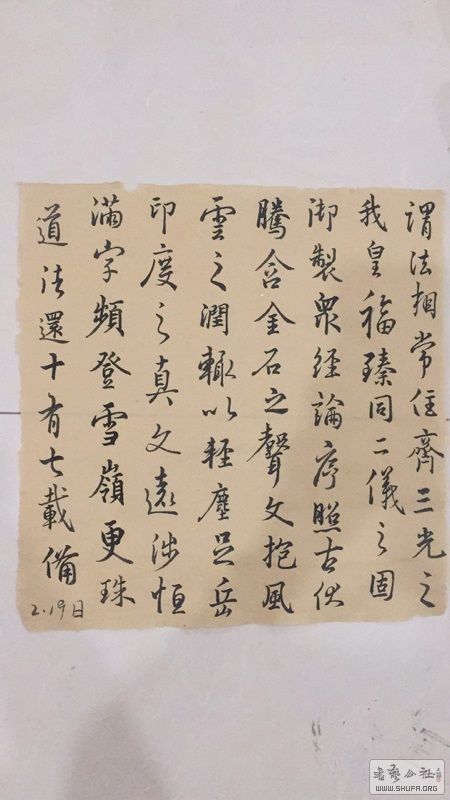 謂法相常住齊三光之
我皇福臻同二儀之固
御製眾經論序照古伏
騰含金石之聲文抱風
雲之潤輙以輕塵足岳
印度之真文遠涉恒
滿字頻登雪嶺更珠
道法還十有七載備
2.19日
书法公社
WWW.SHUFA.ORG